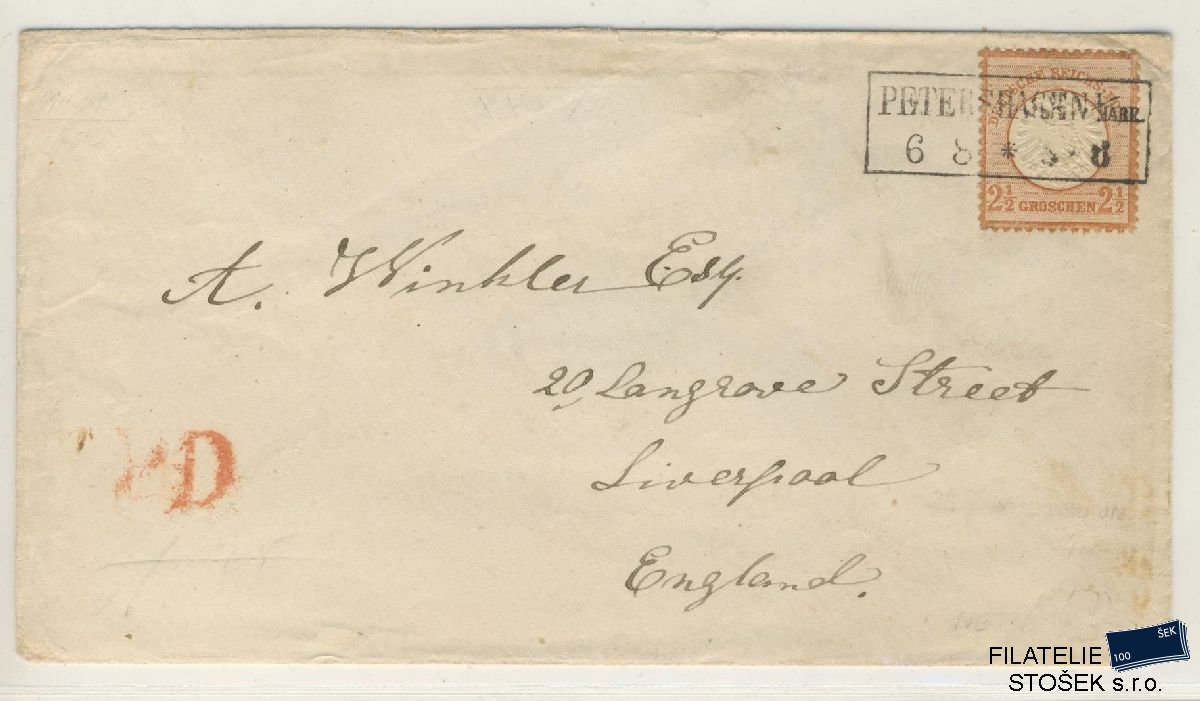 PETERSHAGEN I/ MARK.
6 8 * 5-6
DEUTSCHE REICHS-POST
2½ GROSCHEN 2½
A. Winkler Esq.
20, Langrove Street
Liverpool
England.
PD
FILATELIE
STOŠEK s.r.o.
100 ŠEK